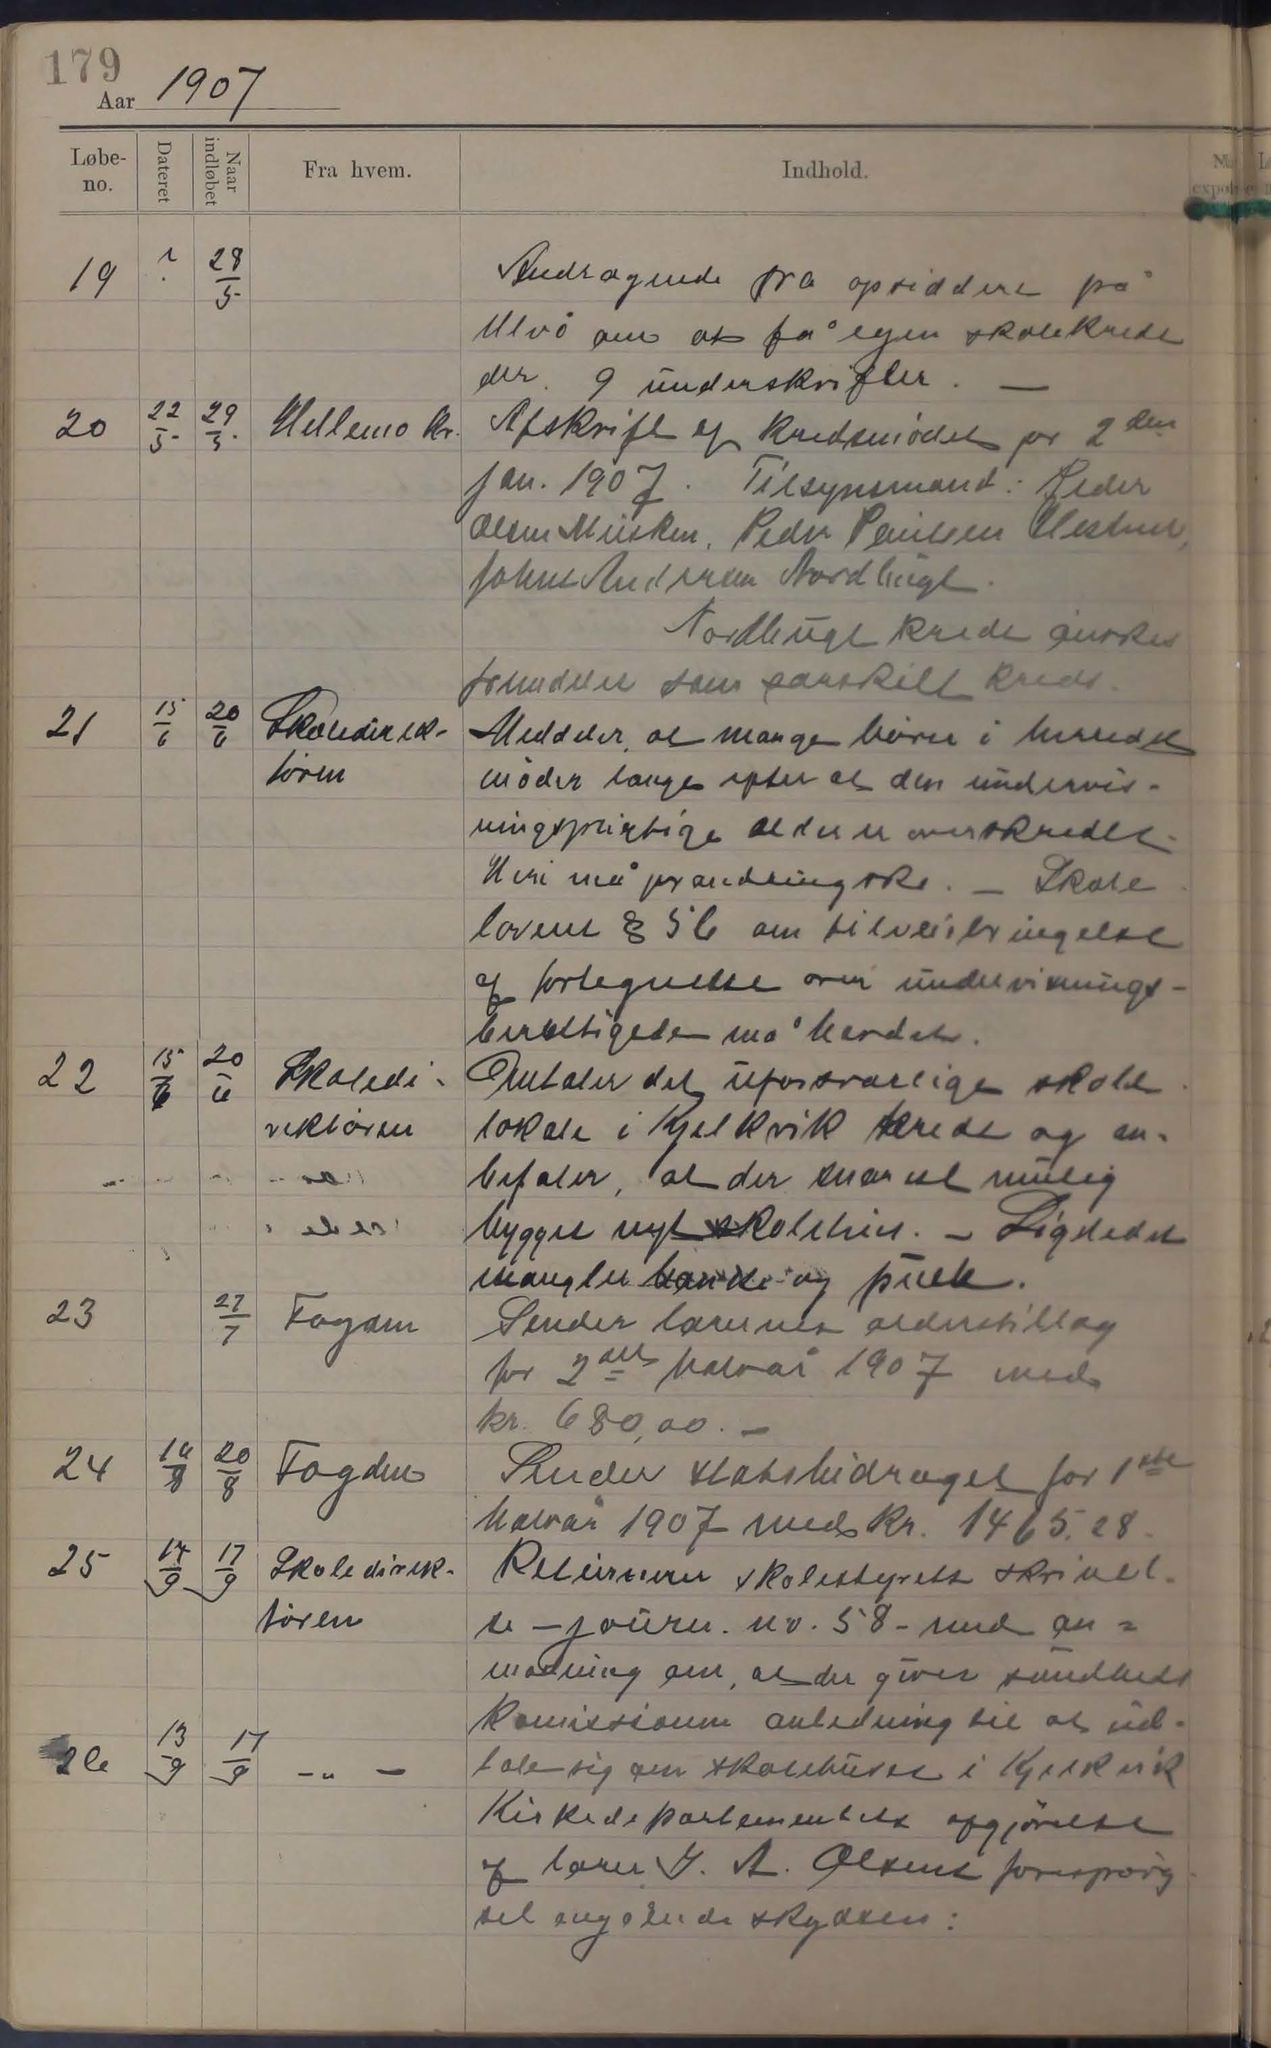 179
Aar 1907
Løbe-no. Dateret Naar indløbet Fra hvem. Indhold.
19 ? 28/5 Andragende fra opsiddere på
Ulvö om at få egen skolekreds
der. 9 underskrifter. —
20 22/5 29/5 Hellemo kr. Afskrift af kredsmödet for 2den
jan. 1907. Tilsynsmænd: Peder
Olsen Müsken, Peder Paulsen
Johns Andersen Nordbügt.
Nordbügt kreds önskes
fremdeles som særskilt kreds.
21 15/6 20/6 Skoledirek- Meddeler, at mange börn i herredet
tören möder længe efter at den undervis-
ningspligtige alder er overskredet.
Heri må forandring ske. — Skole
lovens § 56 om tilveiebringelse
af fortegnelse over undervisnings-
berettigede må hændes.
22 15/6 20/6 Skoledi- Omtaler det uforsvarlige skole
rektören lokale i Kjelkvik kreds og an-
befaler, at der snarest mulig
bygges nyt skolehus. — Ligeledes
mangler tavle og pült.
23 27/7 Fogden Sender lærernes alderstillæg
for 2det halvår 1907 med
kr. 680,00. —
24 14/8 20/8 Fogden Sender statsbidraget for 1ste
halvår 1907 med kr. 1465.28.
25 14/9 17/9 Skoledirek- Returnerer skolestyrets skrivel-
tören se — journ. no. 58 — med an=
modning om, at der gives sundheds
komissionen anledning til at üd-
26 13/9 17/9 —„— tale sig om skolehuset i Kjelkvik
Kirkedepartementets afgjörelse
af lærer J. A. Olsens forespörg
sel angående skydsen: